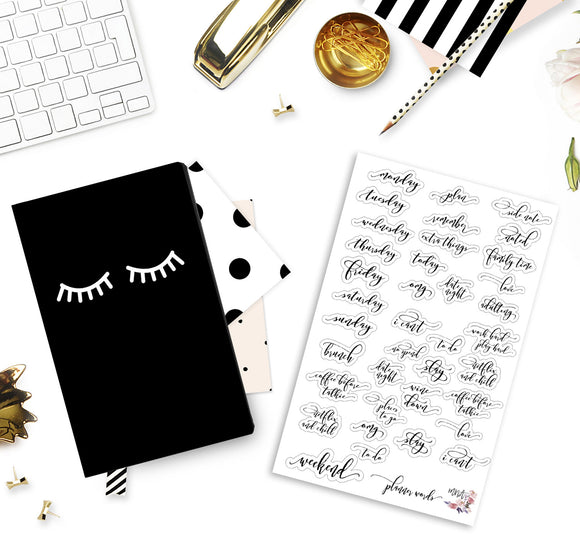 monday
plan
side note
tuesday
remember
noted
wednesday
extra things
family time
thursday
today
friday
omg
date
night
love
adulting
saturday
sunday
i can't
work hard
play hard
brunch
no spend
to do
netflix
and chill
date
night
slay
coffee before
talkie
wine
down
coffee before
talkie
netflix
and chill
places
to go
omg
slay
love
weekend
to do
i can't
planner words